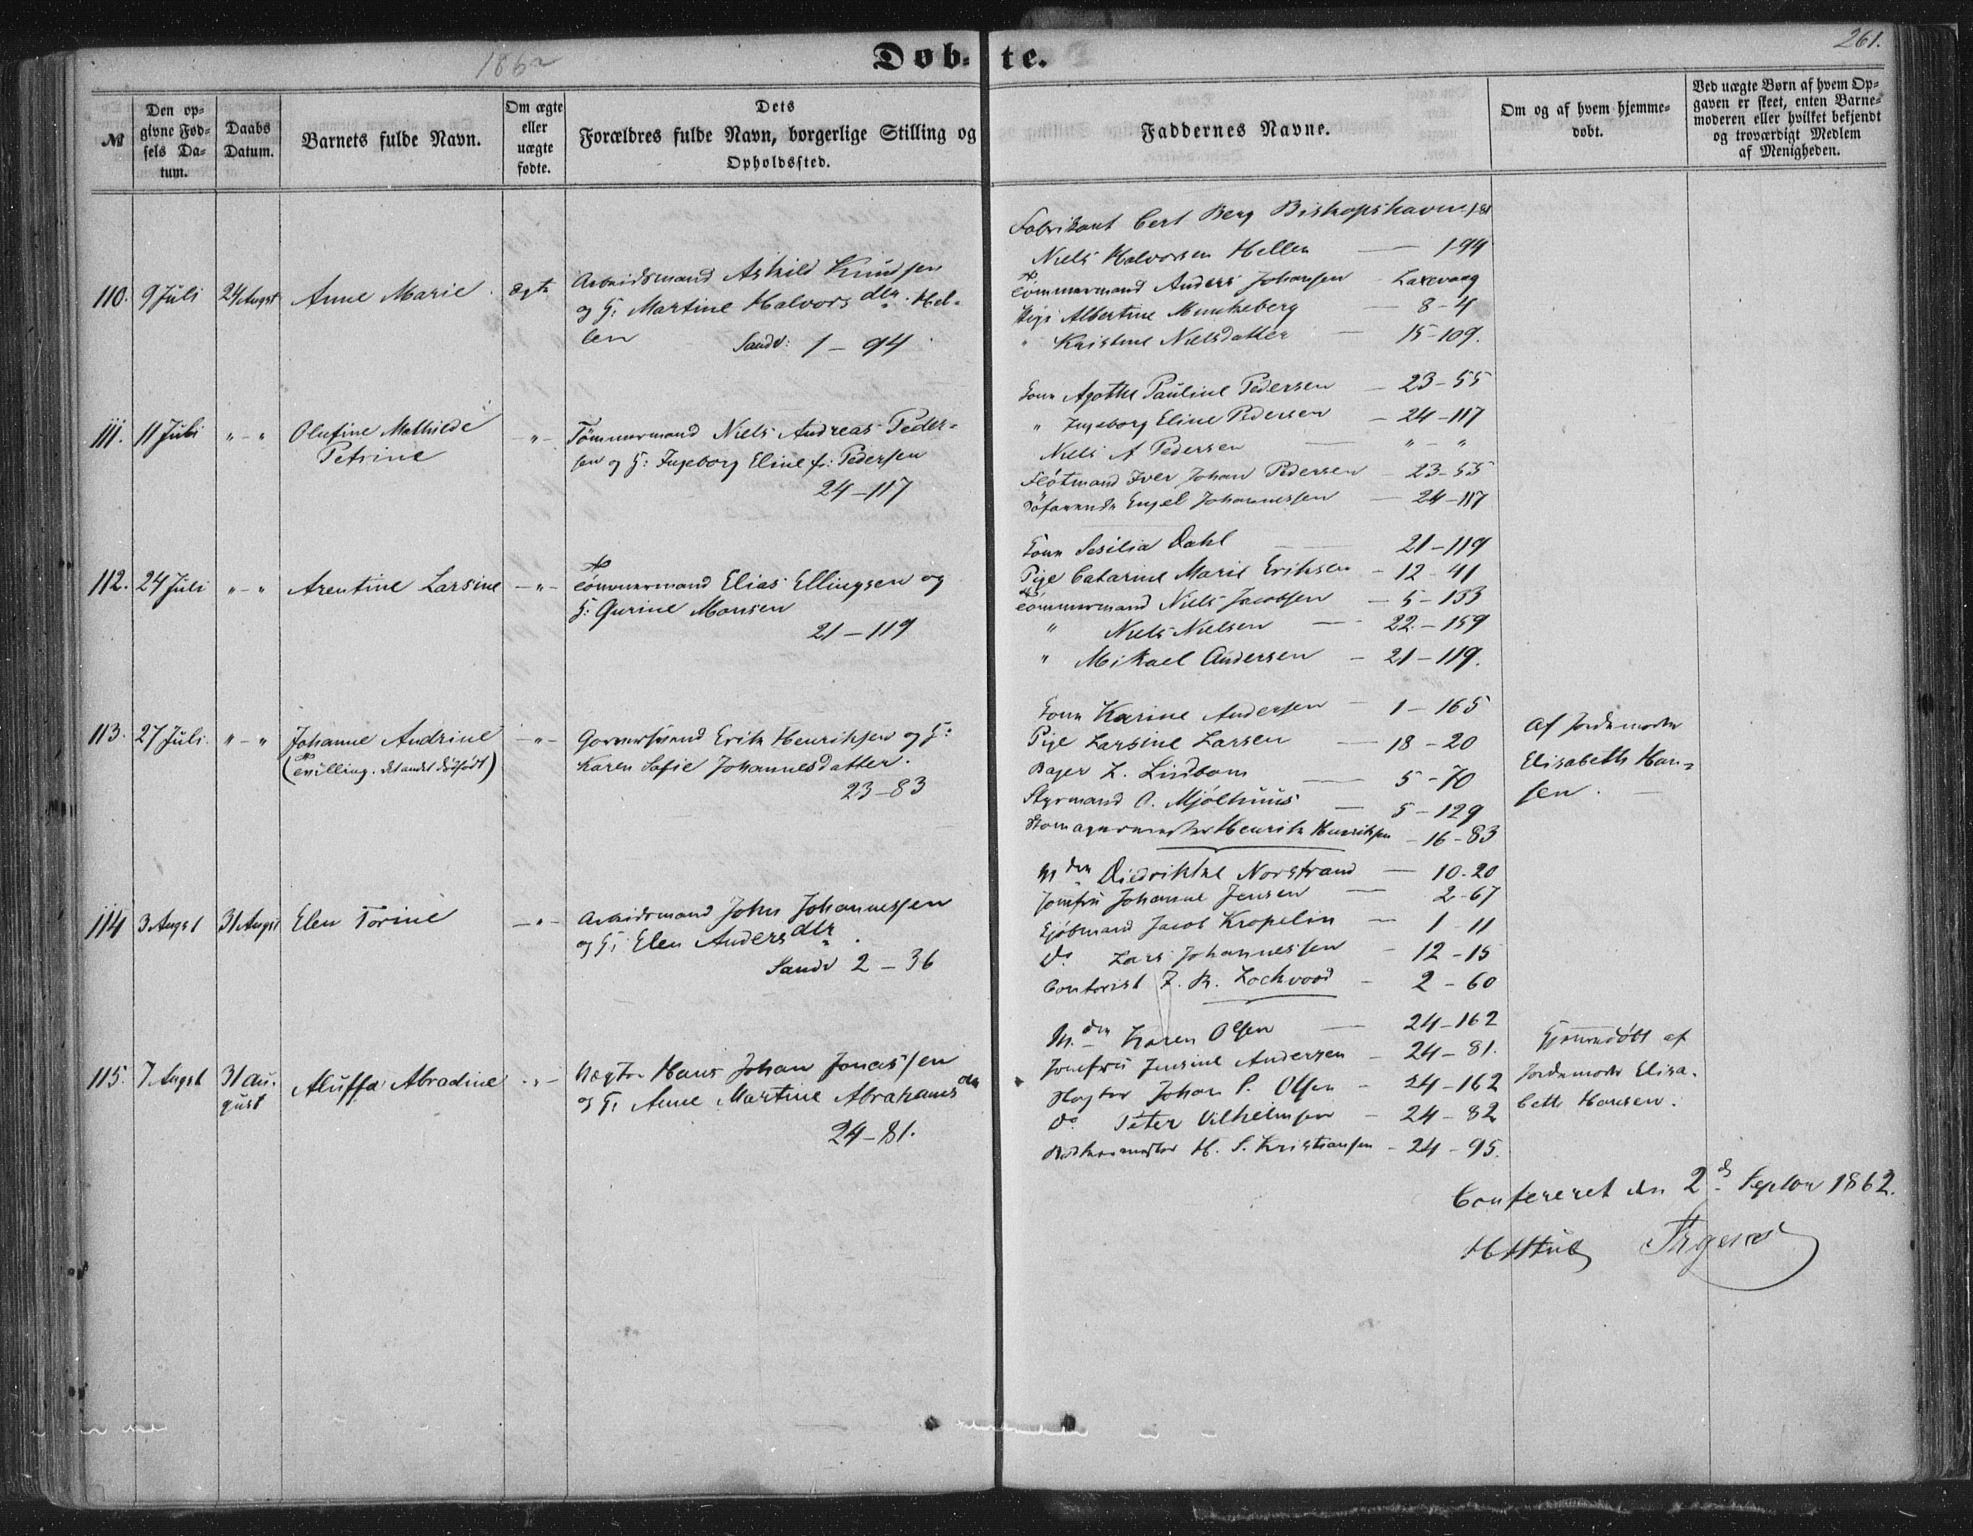 1862
Døb-te.
261.
№
Den opgivne Fødsels Datum.
Daabs Datum.
Barnets fulde Navn.
Om ægte eller uægte fødte.
Dets Forældres fulde Navn, borgerlige Stilling og Opholdssted.
Faddernes Navne.
Om og af hvem hjemmedøbt.
Ved uægte Børn af hvem Opgaven er skeet, enten Barnemoderen eller hvilket bekjendt og troværdigt Medlem af Menigheden.
110. 9 Juli 24 Augst Anne Marie Ægte
Arbeidsmand Askild Knudsen
og H: Martine Halvors dtr. Hel-
len Sandv: 1 – 94
Fabrikant Cert Berg Bishopshavn
Niels Halvorsen Hellen — 1-94
Tömmermand Anders Johansen – Laxevaag
Pige Albertine Munkeberg – 8-4
" Kristine Nielsdatter – 15-109.
111. 11 Juli " - " Olufine Mathilde
Petrine
- " - Tømmermand Niels Andreas Peder-
sen og H: Ingeborg Eline f: Pedersen
24-117
Kone Agathe Pauline Pedersen – 23-55
" Ingeborg Eline Pedersen – 24-117
Niels A Pedersen — " - "
Fløtmand Iver Johan Pedersen – 23-55
Søfarende Engel Johannessen – 24-117
112. 24 Juli " - " Arentine Larsine - " -
Tömmermand Elias Ellingsen og
H: Gurine Monsen
21-119
Kone Sesilia Dahl — 21-119
Pige Catarine Marie Eriksen – 12-41
Tömmermand Niels Jacobsen – 5-133
" Niels Nielsen — 22-159
" Mikael Andersen – 21-119.
113. 27 Juli. " - " Johanne Andrine - " -
(Tvilling. det andet dödfödt)
Garversvend Erik Henriksen og H:
Karen Sofie Johannesdatter.
23-83
Kone Karine Andersen – 1-165
Pige Larsine Larsen — 18-20
Bager L. Lindbom — 5-70
Styrmand O. Mjölhuus — 5-129
Skomagermester Henrik Henriksen – 16-83
Af Jordemoder
Elisabeth Han-
sen.
114 3 Augst 31 Augst Elen Torine - " -
Arbeidsmand John Johannessen
og H: Elen Anders dtr.
Sandv 2-36
Mden Diedrikke Norstrand — 10-20
Jomfru Johanne Jensen — 2-67
Sjömand Jacob Kropelin – 1-11
do Lars Johannessen – 12-15
Contorist Z. R. Lockvood – 2-60
115. 7 Augst 31 Au-
gust
Aluffa Abradine - " -
Hans Johan Jonassen
og H: Anne Martine Abrahams dtr
24-81.
M.den Karen Olsen — 24-162
Jomfru Jensine Andersen – 24-81.
Johan P. Olsen – 24-162
do Peter Vilhelmsen – 24-82
H. S. Kristiansen – 24-95.
Hjemmedöbt af
Jordemoder Elisa-
beth Hansen.
Confereret den 2 d Septbr 1862.